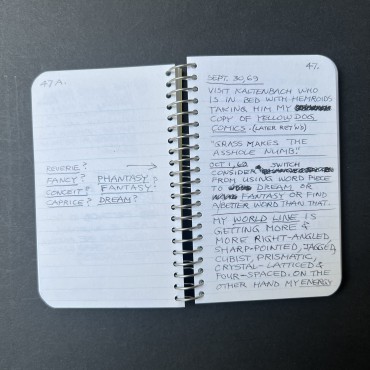 47A.
REVERIE?
FANCY? PHANTASY?
CONCEIT? FANTASY?
CAPRICE? DREAM?
47.
SEPT. 30, 69
VISIT KALTENBACH WHO
IS IN BED WITH HEMROIDS
TAKING HIM MY
COPY OF YELLOW DOG
COMICS. (LATER RET'D)
"GRASS MAKES THE
ASSHOLE NUMB."
OCT 1, 69 SWITCH
CONSIDER
FROM USING WORD PIECE
TO DREAM OR
FANTASY OR FIND
A BETTER WORD THAN THAT.
MY WORLD LINE IS
GETTING MORE &
MORE RIGHT-ANGLED,
SHARP-POINTED, JAGGED,
CUBIST, PRISMATIC,
CRYSTAL-LATTICED &
FOUR-SPACED. ON THE
OTHER HAND MY ENERGY